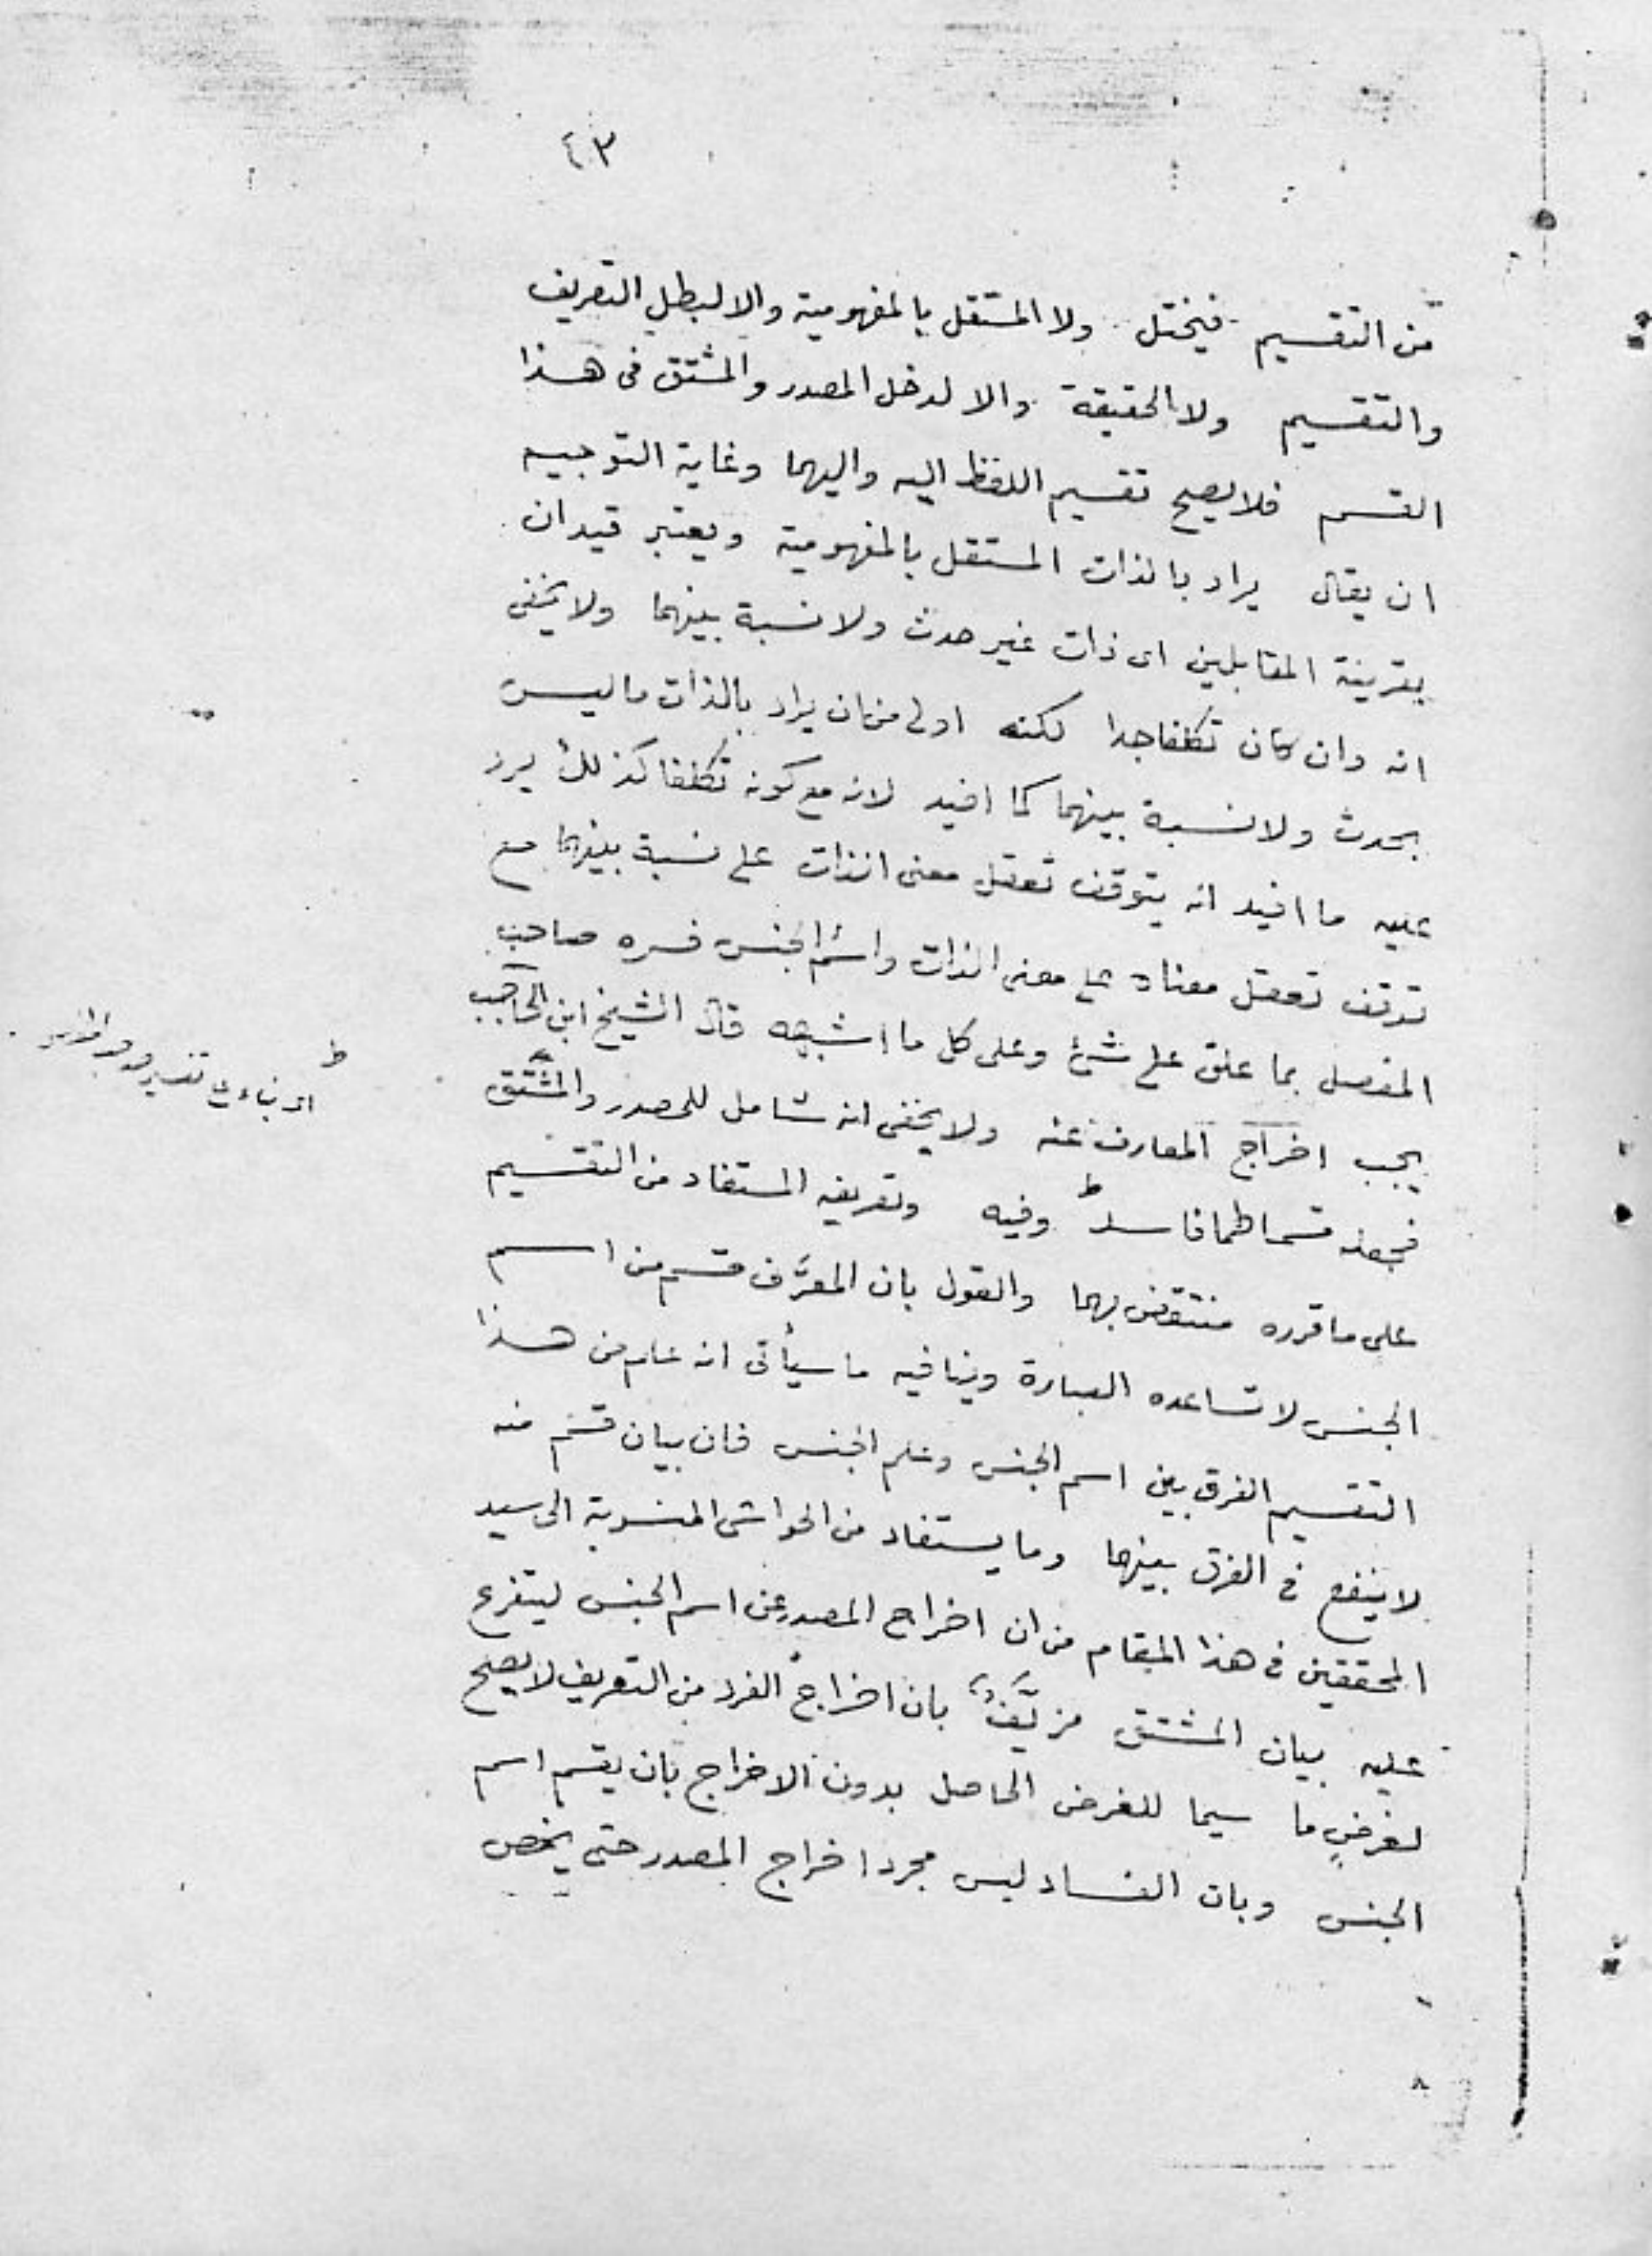 ٤٣
من التقسيم فيختل ولا المستقل بالمفهومية والا لبطل التعريف
والتقسيم ولا الحقيقة والا لدخل المصدر والمشتق فى هذا
القسم فلا يصح تقسيم اللفظ اليه واليهما وغاية التوجيه
ان يقال يراد بالذات المستقل بالمفهومية ويعتبر قيدان
بقرينة المقابلين اى ذات غير حدث ولا نسبة بينهما ولا يخفى
انه وان كان تكلفا جدا لكنه اولى من ان يراد بالذات ما ليس
بحدث ولا نسبة بينهما كما افيد لانه مع كونه تكلفا كذلك يرد
عليه ما افيد انه يتوقف تعقل معنى الذات على نسبة بينهما مع
توقف تعقل معناه على معنى الذات واسم الجنس فسره صاحب
المفصل بما علق على شئ وعلى كل ما اشبهه قال الشيخ ابن الحاجب
يجب اخراج المعارف عنه ولا يخفى انه شامل للمصدر والمشتق
فجعله قسما لهما فاسد وفيه وتعريفه المستفاد من التقسيم
على ما قرره منتقض بهما والقول بان المعرَّف قسم من اسم
الجنس لا تساعده العبارة وينافيه ما سيأتى انه علم من هذا
التقسيم الفرق بين اسم الجنس وعلم الجنس فان بيان قسم منه
لا ينفع فى الفرق بينهما وما يستفاد من الحواشى المنسوبة الى سيد
المحققين فى هذا المقام من ان اخراج المصدر عن اسم الجنس ليتفرع
عليه بيان المشتق مزيَّفٌ بان اخراج الفرد من التعريف لا يصح
لغرضٍ ما سيما للغرض الحاصل بدون الاخراج بان يقسم اسم
الجنس وبان الفساد ليس مجرد اخراج المصدر حتى يخص